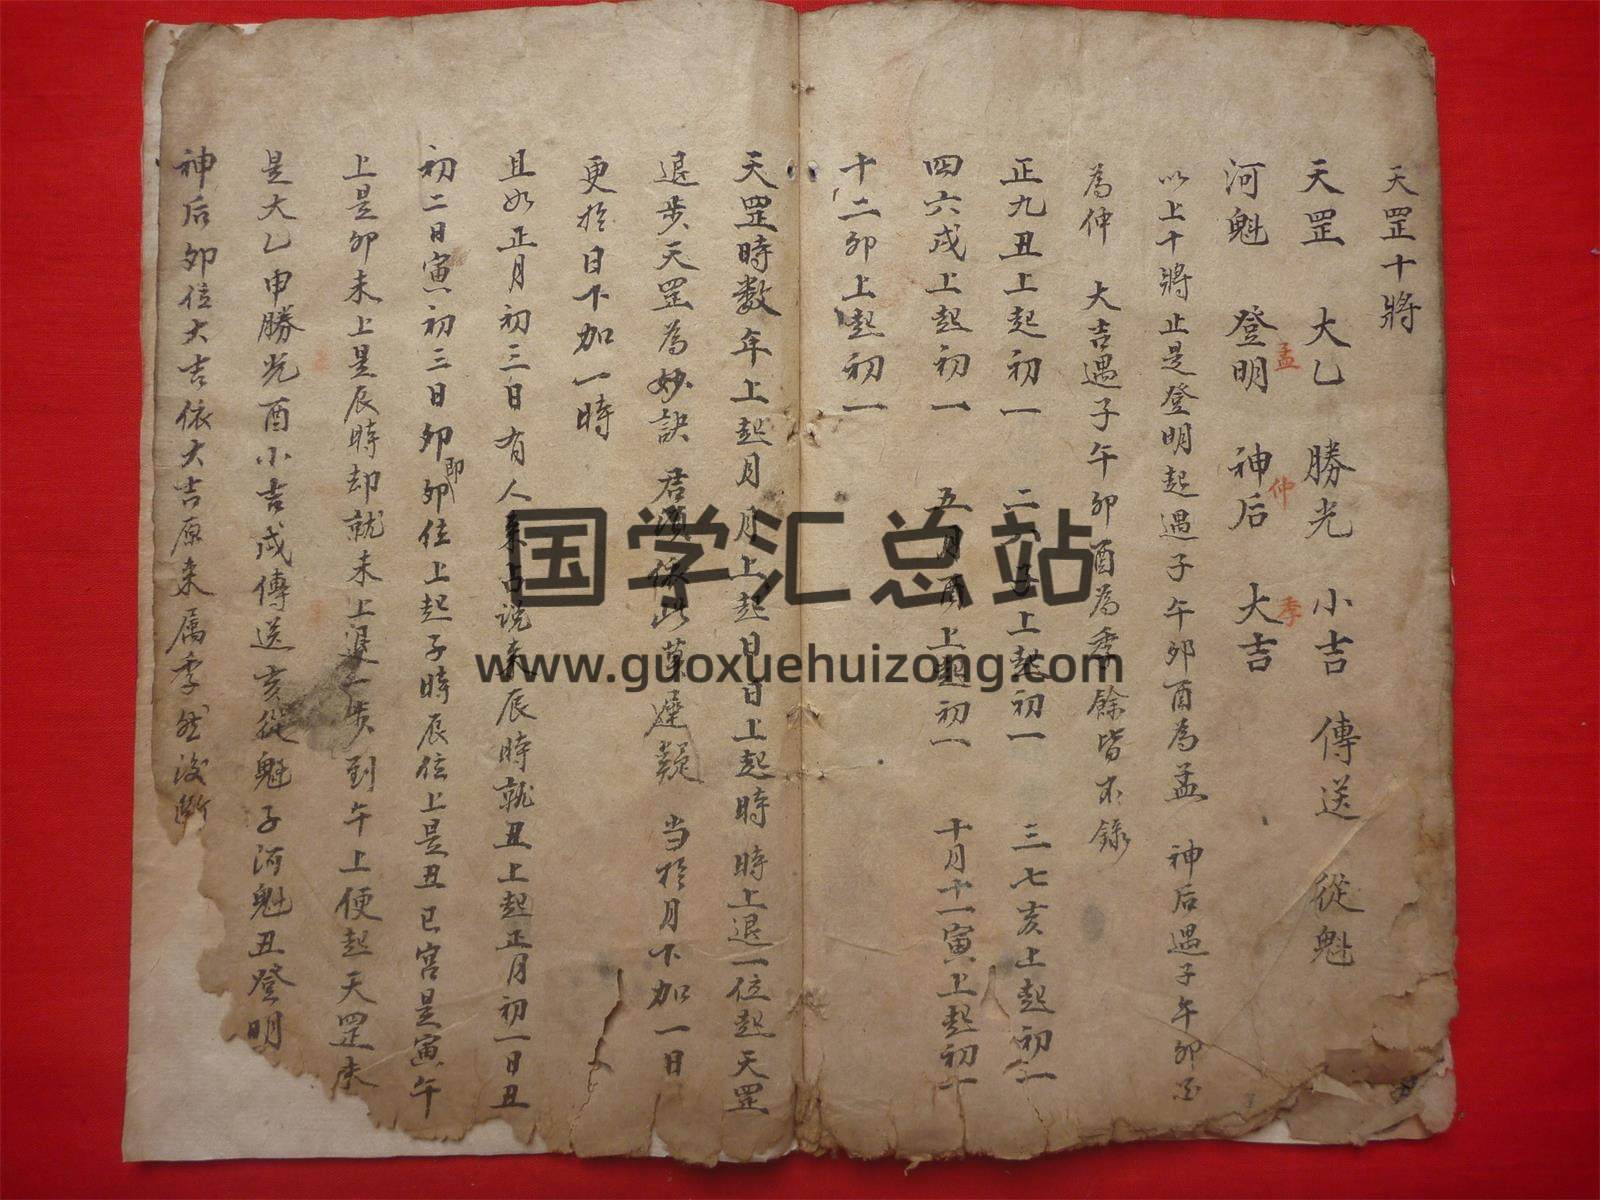 天罡十將
天罡 大乙 勝光 小吉 傳送 從魁
河魁 登明 神后 大吉
孟 仲 季
以上十將止是登明起遇子午卯酉為孟 神后遇子午卯酉
為仲 大吉遇子午卯酉為季 餘皆不錄
正九丑上起初一 二 子上起初一 三七亥上起初一
四六戌上起初一 五月酉上起初一 十月十一寅上起初一
十二卯上起初一
天罡時数年上起月月上起日日上起時 時上退一位起天罡
退步天罡為妙訣 君須依此 達疑 当於月下加一日
更於日下加一時
且如正月初三日有人來占说來辰時就丑上起正月初一日丑
初二日寅初三日卯即卯位上起子時辰位上是丑巳宮是寅午
上是卯未上是辰時却就未上退一步到午上便起天罡未
是大乙申勝光酉小吉戌傳送亥從魁子河魁丑登明
神后卯位大吉依大吉原來属季然後断
国学汇总站
www.guoxuehuizong.com